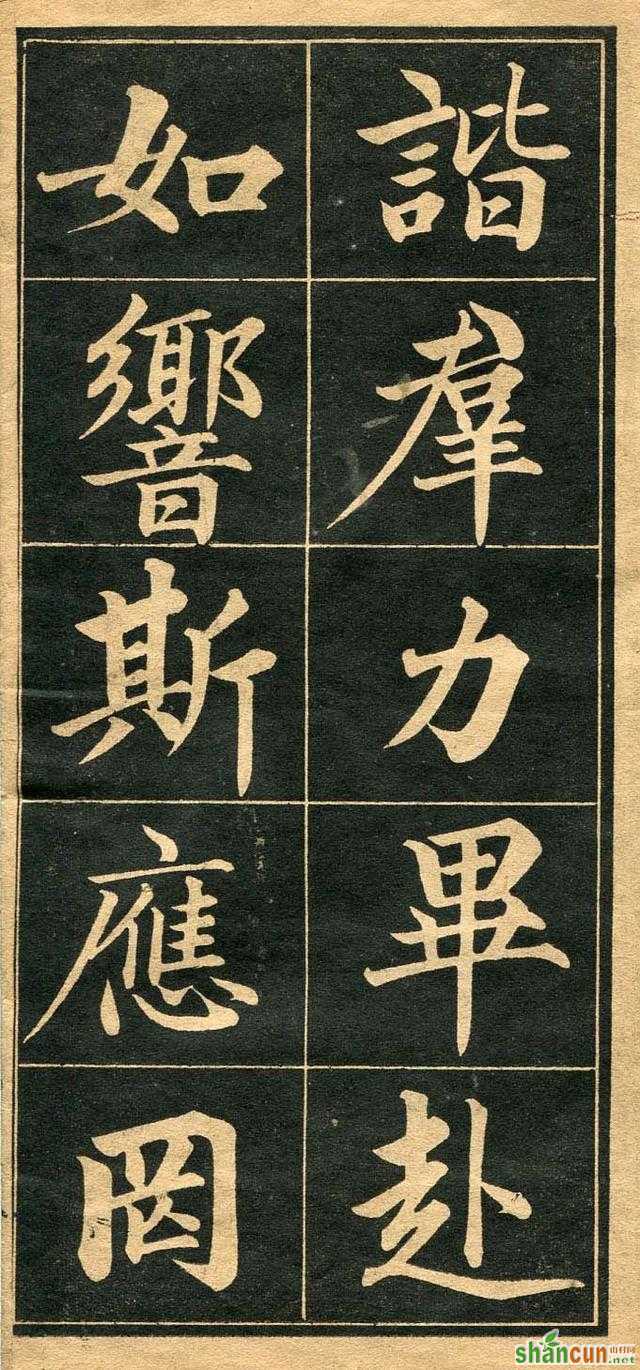 諧羣力畢赴
如響斯應罔
shancun
山村网
.net